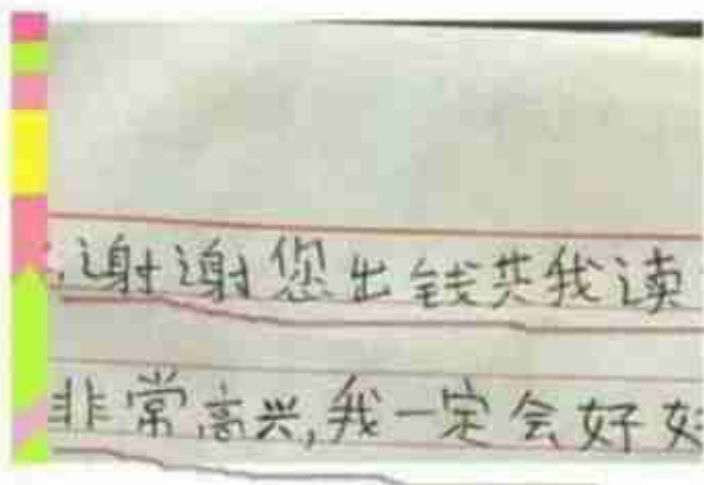 谢谢您出钱共我读
非常高兴,我一定会好好